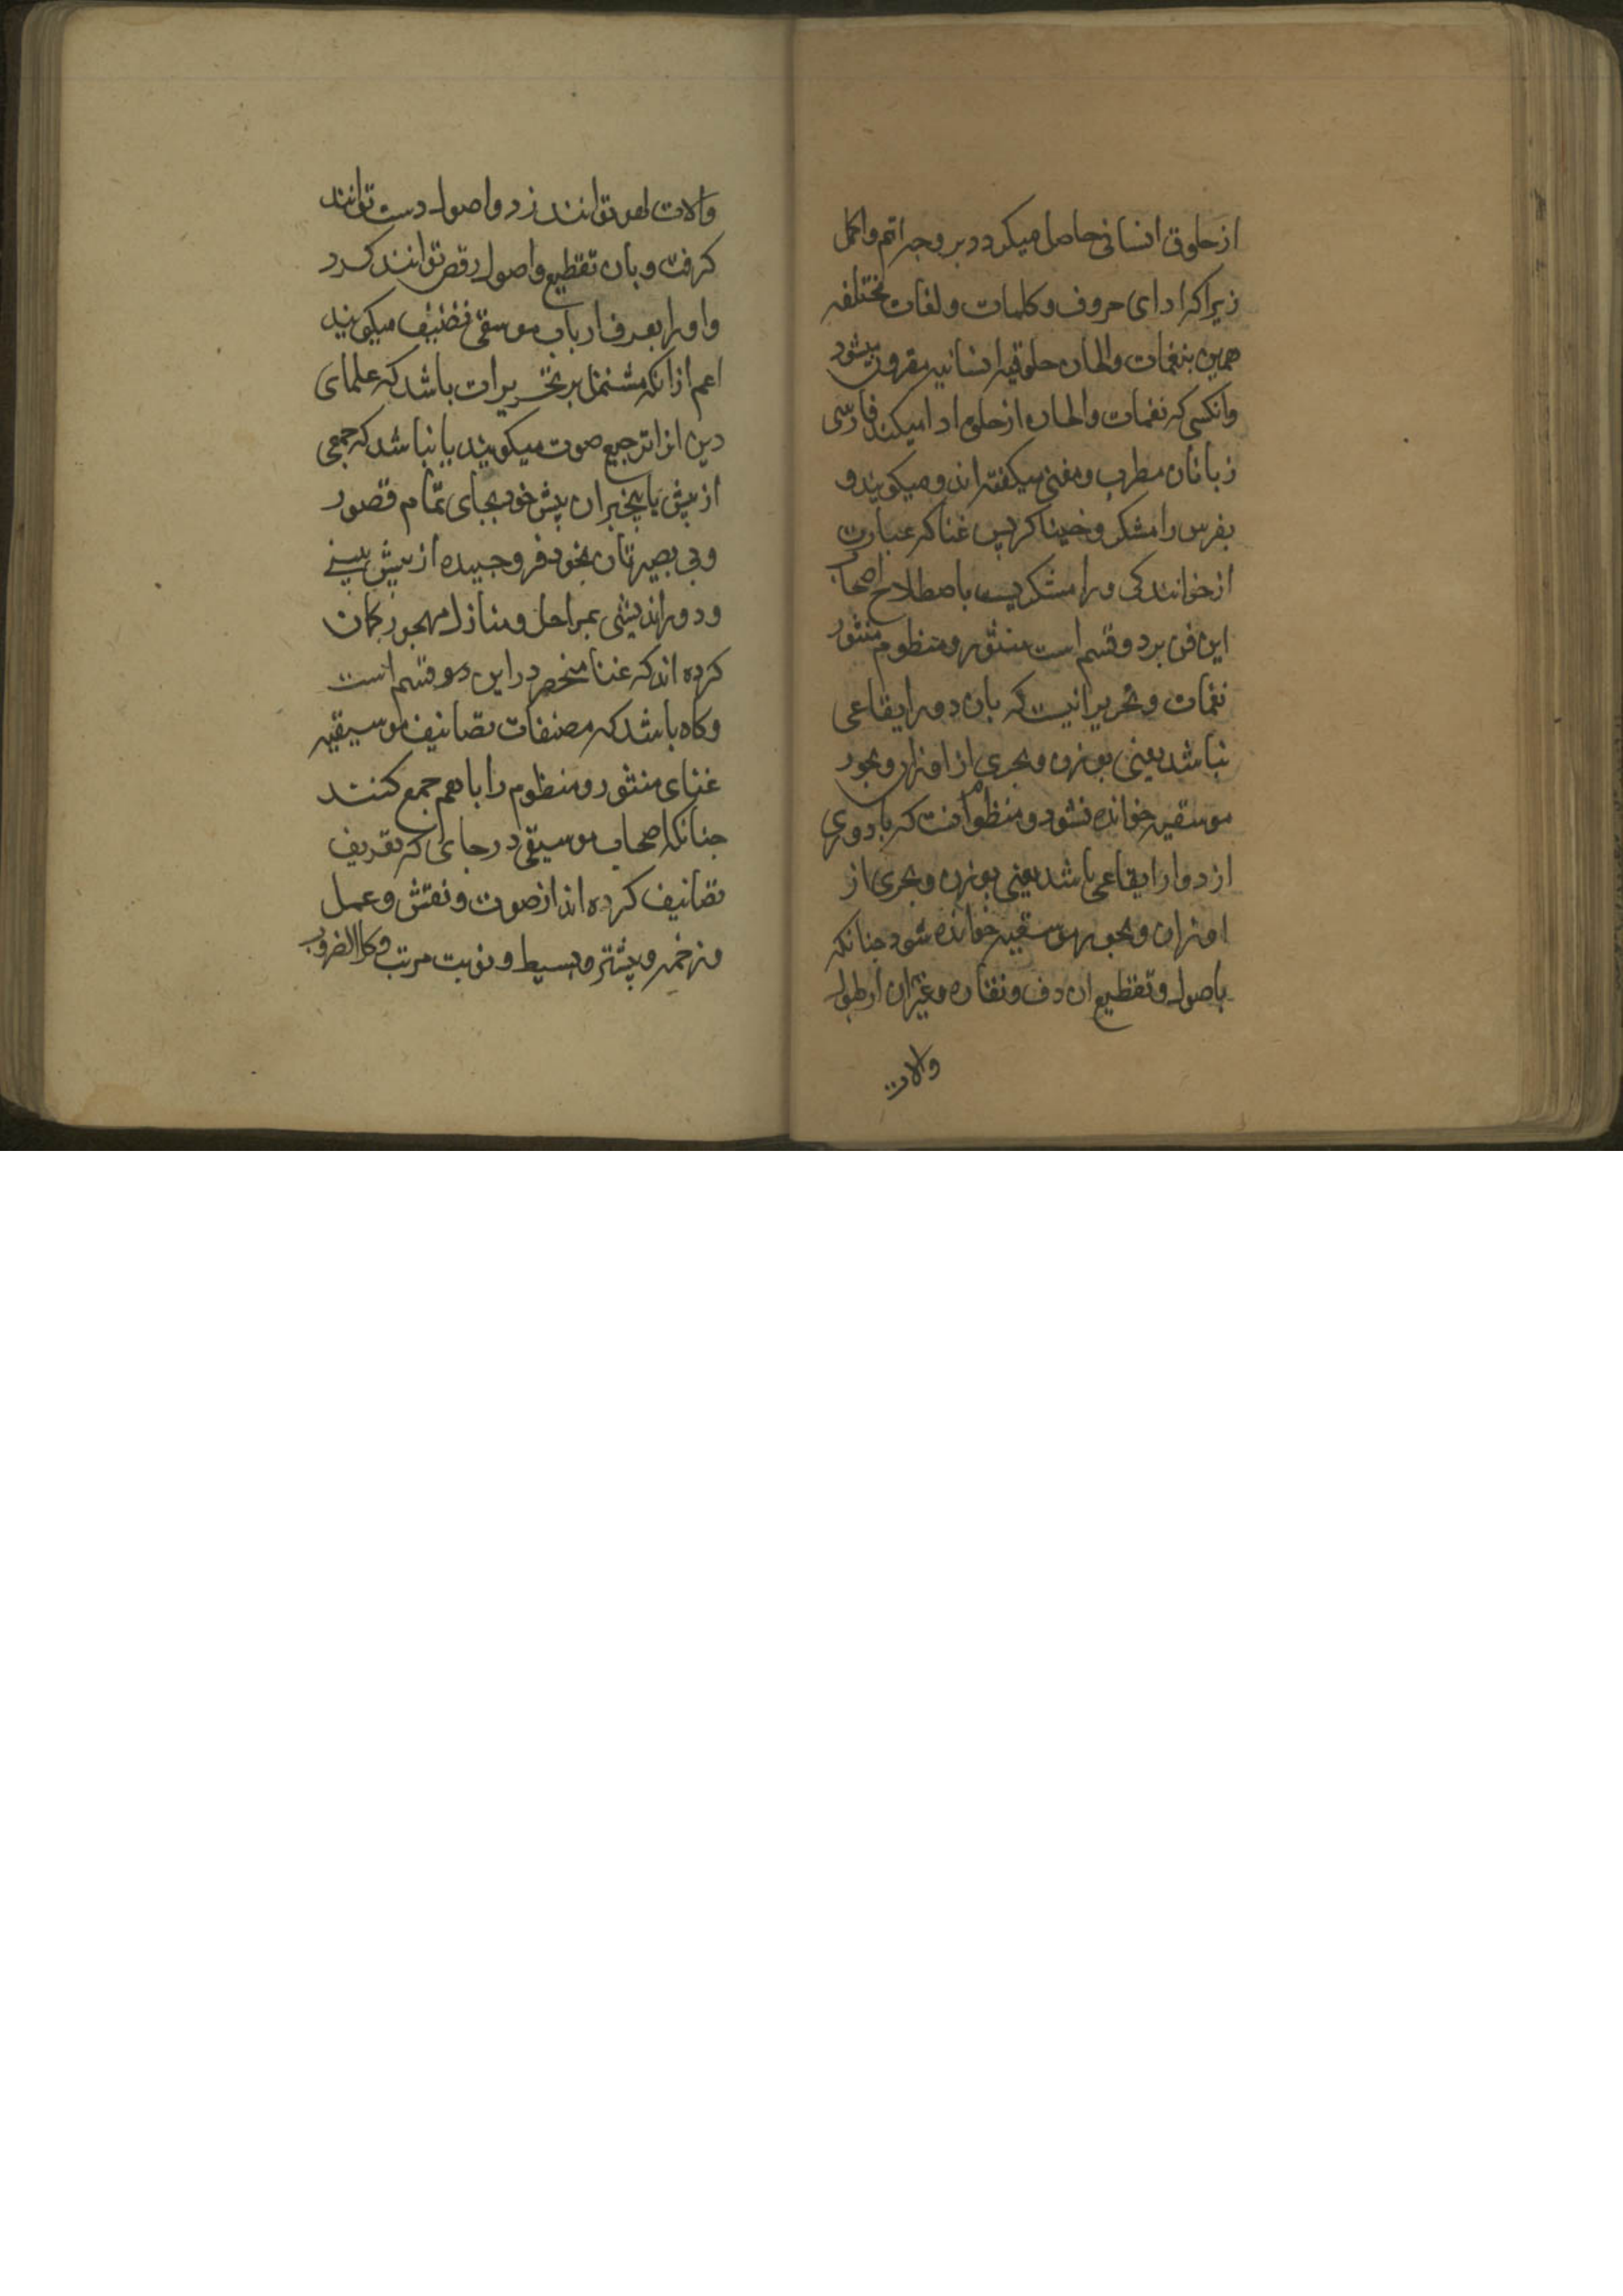 از حلوق انسانی حاصل میکردد بر وجه اتم و اکمل
زیرا که ادای حروف و کلمات و لغات مختلفه
همین بنغمات و الحان حلوقیه انسانیه مقرون میشود
و آنکسی که نغمات و الحان از حلوق ادا میکند فارسی
زبانان مطرب و مغنی میکفته اند و میکویند و
بفرس رامشکر و خنیاکر پس غنا که عبارت
از خوانندکی و رامشکریست باصطلاح اصحاب
این فن بر دو قسم است منثور و منظوم منثور
نغمات و تحریراتیست که بآن دور ایقاعی
نباشد یعنی بوزن و بحری از اوزان و بحور
موسقیه خوانده نشود و منظوم آنست که با دوری
از دوار ایقاعی باشد یعنی بوزن و بحری از
اوزان و بحور موسقیه خوانده شود جنانکه
باصول و تقطیع آن دف و نقاره و غیر آن از طبول
والات
والات لهو توانند زد و اصول دست توانند
کرفت و بآن تقطیع و اصول رقص توانند کرد
و او را بعرف ارباب موسقی تصنیف میکویند
اعم از آنکه مشتمل بر تحریرات باشد که علمای
دین آنرا ترجیع صوت میکویند یا نباشد که جمعی
از بیش یا بیخبران پیش خود بجای تمام قصور
و بی بصیرتان بخود فرو جیده از پیش بینی
و دور اندیشی بمراحل و منازل مهجور کمان
کرده اند که غنا منحصر در این دو قسم است
و کاه باشد که مصنفات تصانیف موسیقیه
غنای منثور و منظوم را با هم جمع کنند
جنانکه اصحاب موسیقی در جای که تعریف
تصانیف کرده اند از صوت و نقش و عمل
و زخمه و پیشرو و بسیط و نوبت مرتب و کل الضروب